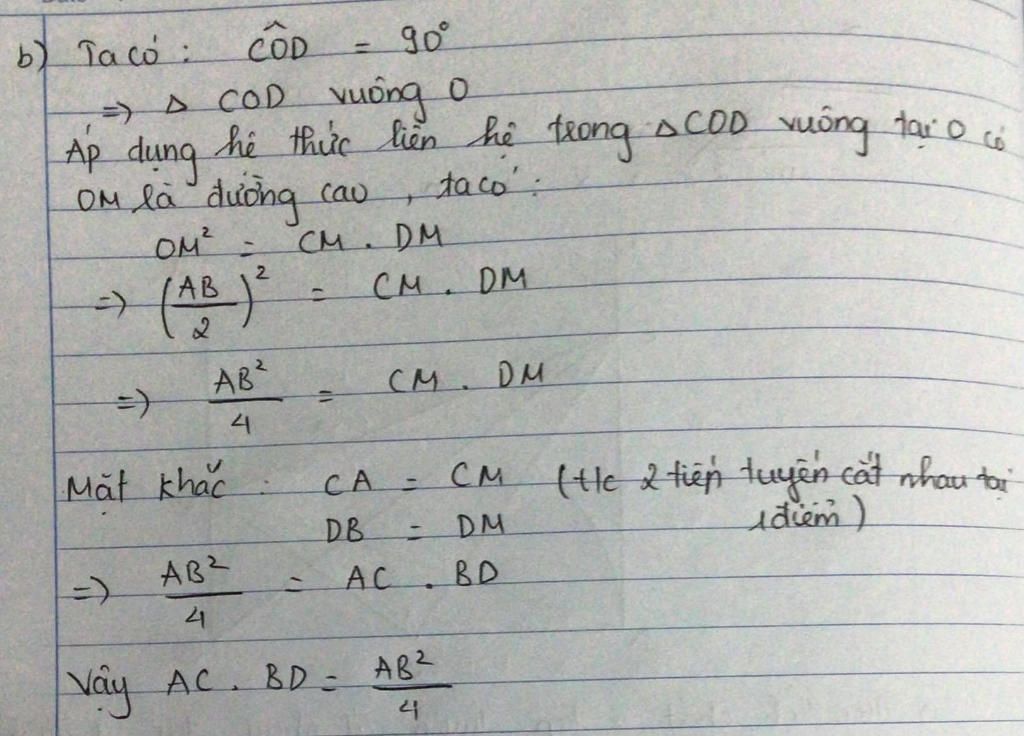 b) Ta có : CÔD = 90°
=> Δ COD vuông O
Áp dụng hệ thức liên hệ trong Δ COD vuông tại O có
OM là đường cao , ta có :
OM² = CM . DM
=> (AB/2)² = CM . DM
=> AB²/4 = CM . DM
Mặt khắc : CA = CM (t/c 2 tiếp tuyến cắt nhau tại
DB = DM 1 điểm)
=> AB²/4 = AC . BD
Vậy AC . BD = AB²/4